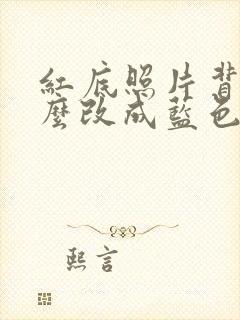 紅底照片背
麼改成藍色
熙言